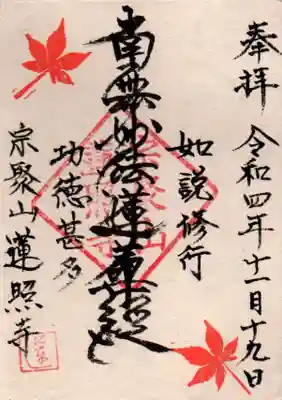 奉拝 令和四年十一月十九日
如説修行
南無妙法蓮華経
功徳甚多
宗聚山 蓮照寺